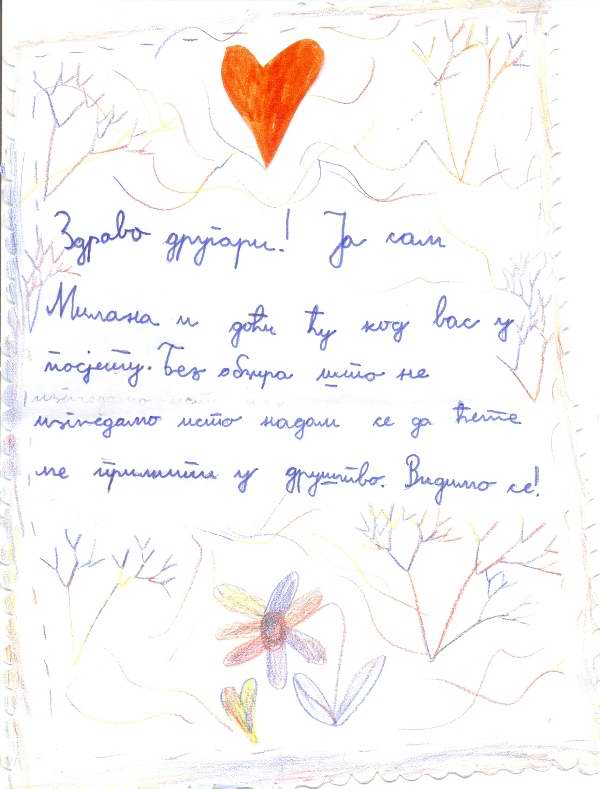 Здраво другари! Ја сам
Милана и доћи ћу код вас у
посјету. Без обзира што не
изгледамо исто надам се да ћете
ме примити у друштво. Видимо се!